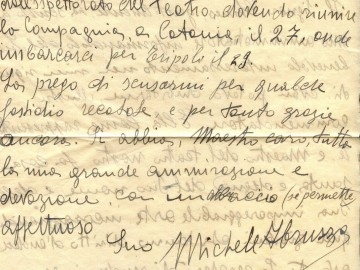 Ispettorato del Teatro dovendo riunire
la Compagnia, a Catania, il 27, onde
imbarcarci per Tripoli il 29.
La prego di scusarmi per qualche
fastidio recatole e per tanto grazie
ancora. Si abbia, Maestro caro, tutta
la mia grande ammirazione e
devozione, con un abbraccio (se permette)
affettuoso
Suo Michele Abruzzo